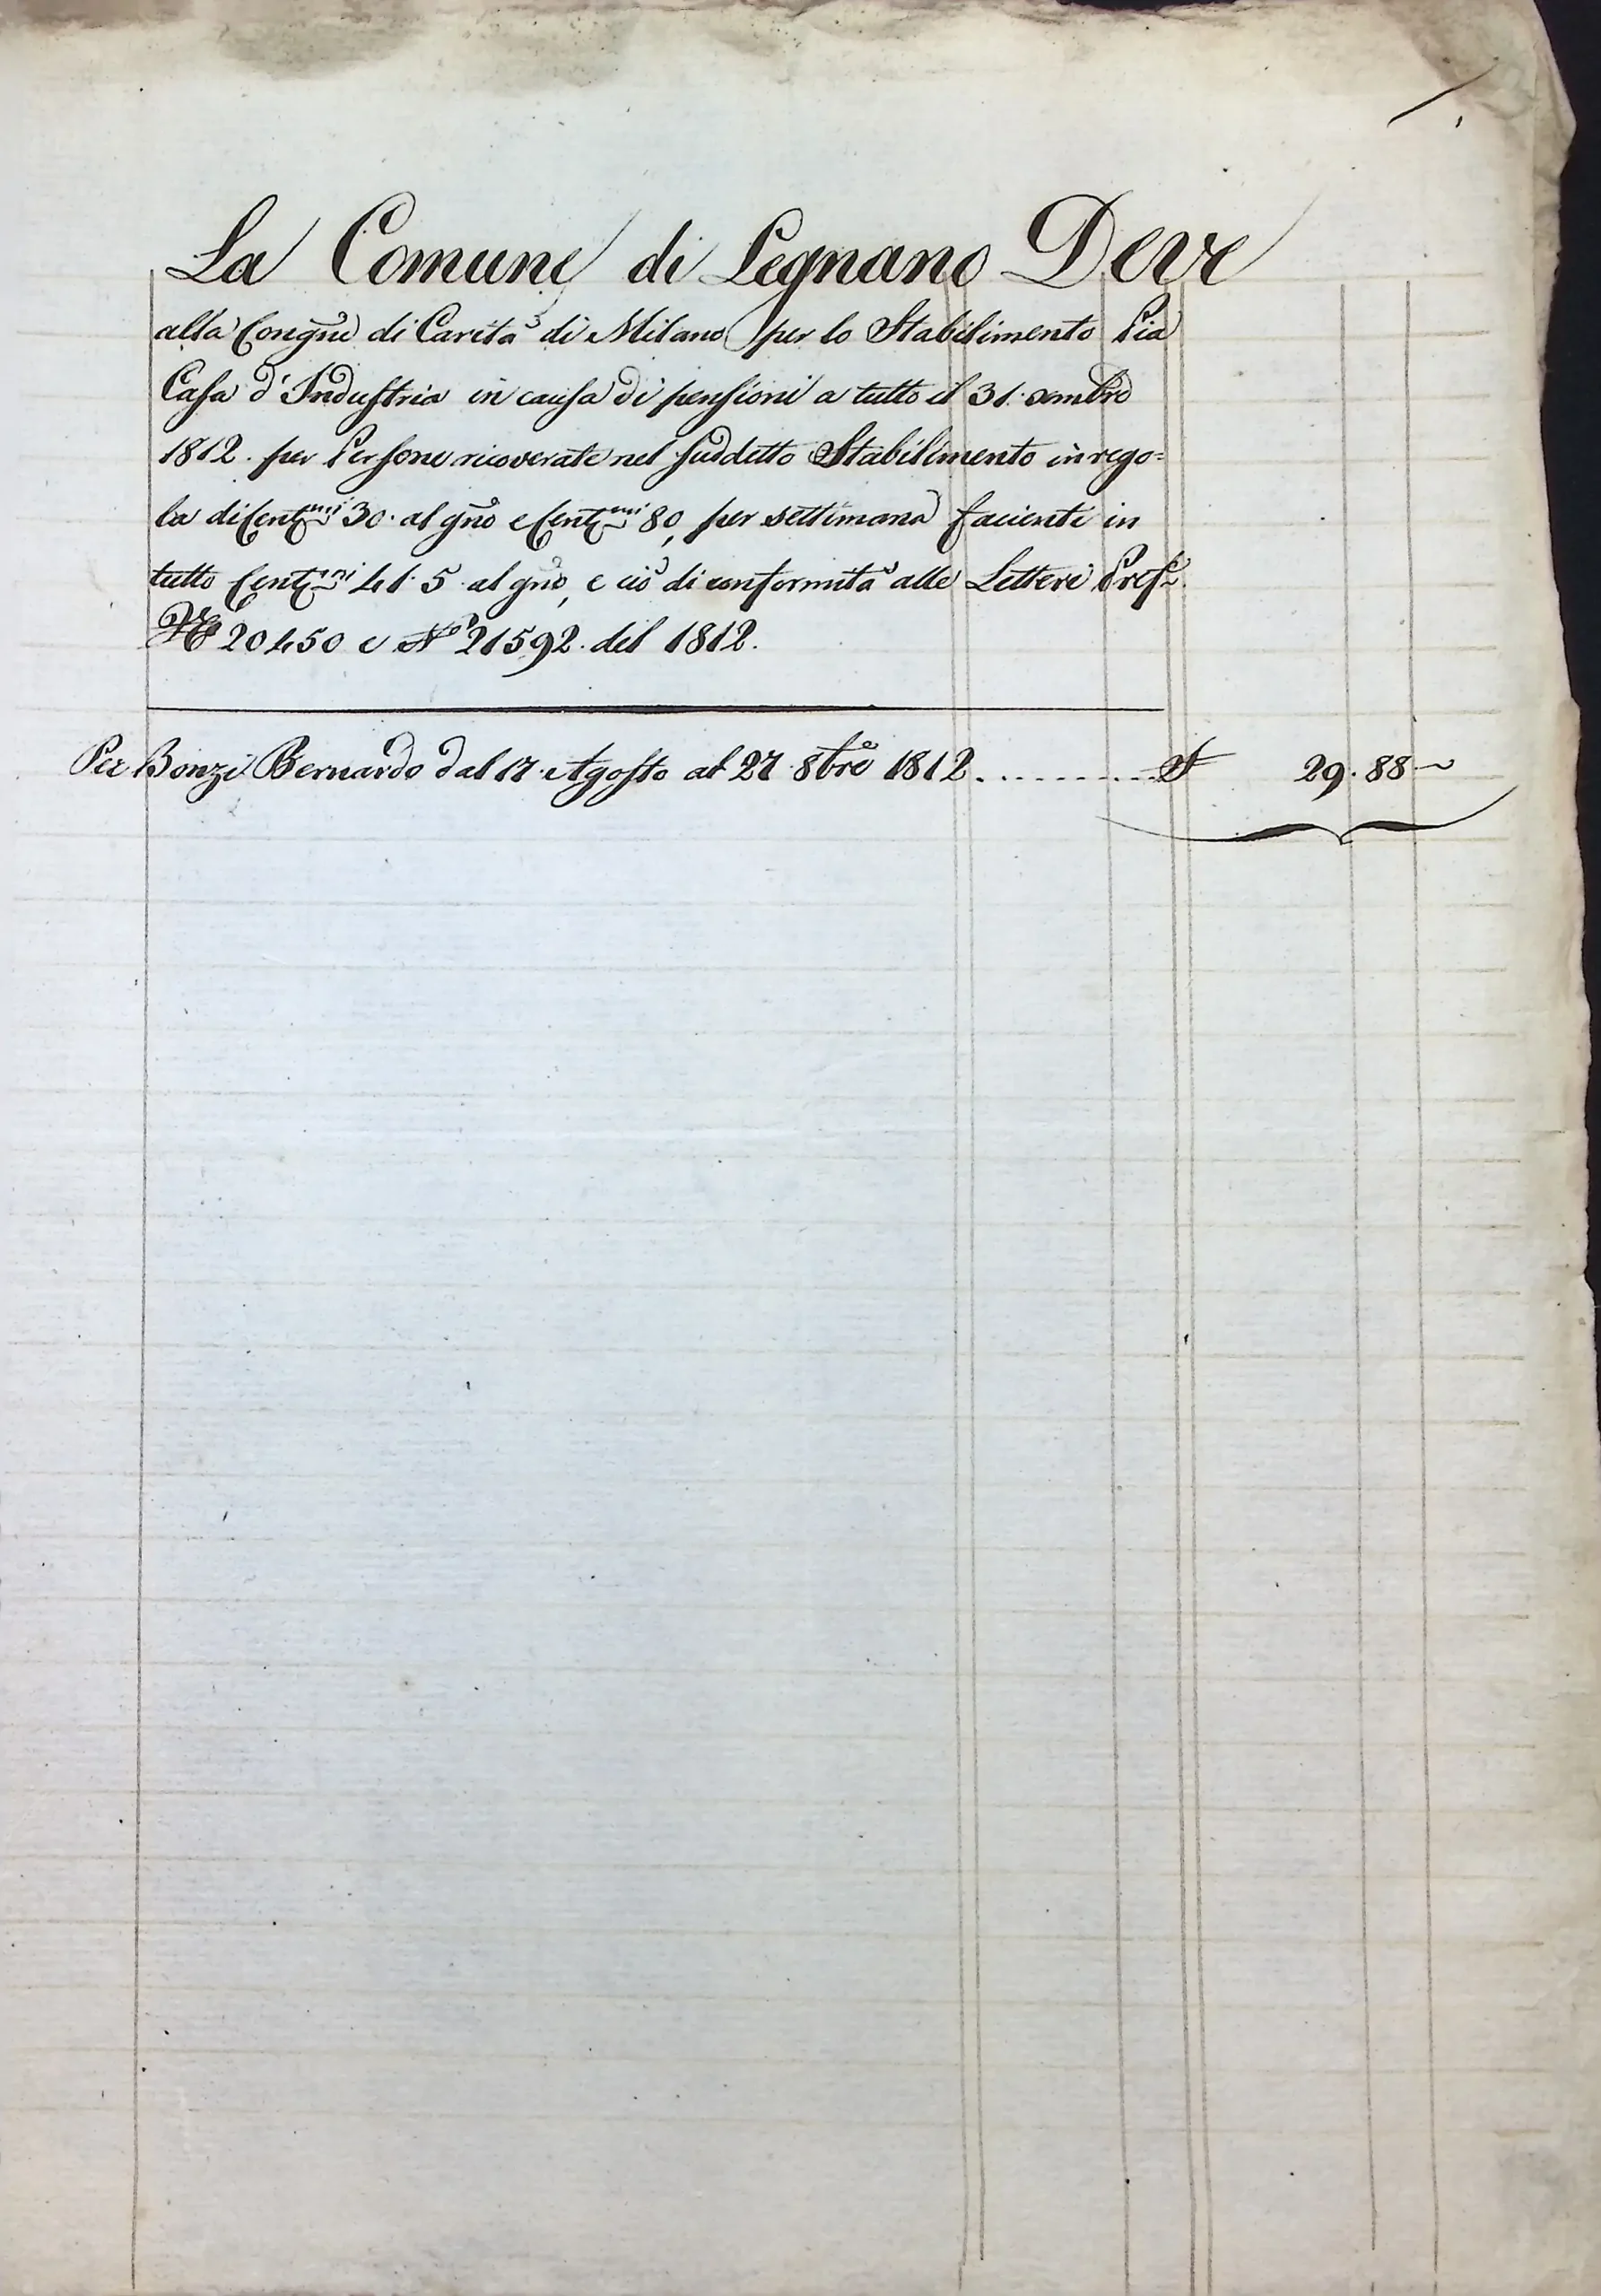 La Comune di Legnano Deve
alla Congne di Carità di Milano per lo Stabilimento Pia
Casa d'Industria in causa di pensioni a tutto il 31 Xmbre
1812. per Persone ricoverate nel suddetto Stabilimento in rego=
la di Centmi 30. al gno e Centmi 80, per settimana facienti in
tutto Centmi 41. 5. al gno, e ciò di conformità alle Lettere Prefe
No 20450 e No 21592. del 1812.
Per Bonzi Bernardo dal 17. Agosto al 27 8bre 1812. . . . . . . . . . £ 29. 88 ~